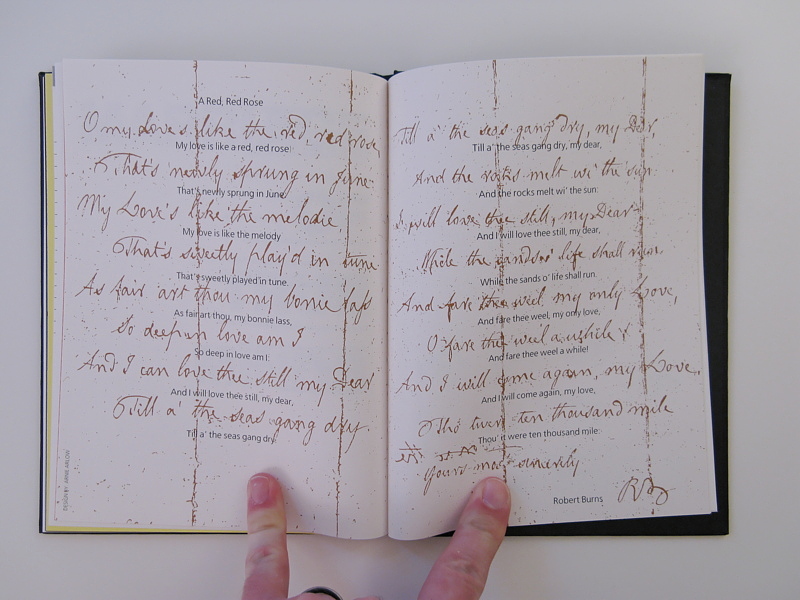 A Red, Red Rose
O my Love's like the red, red rose,
My love is like a red, red rose!
That's newly sprung in June
That's newly sprung in June,
My Love's like the melodie
My love is like the melody
That's sweetly play'd in tune
That's sweetly played in tune.
As fair art thou my bonie lass
As fair art thou, my bonnie lass,
So deep in love am I
So deep in love am I:
And I can love thee still my Dear
And I will love thee still, my dear,
Till a' the seas gang dry.
Till a' the seas gang dry.
Till a' the seas gang dry, my Dear,
Till a' the seas gang dry, my dear,
And the rocks melt wi' the sun
And the rocks melt wi' the sun:
I will love thee still, my Dear
And I will love thee still, my dear,
While the sands o' life shall run
While the sands o' life shall run.
And fare thee weel my only Love,
And fare thee weel, my only love,
O fare thee weel a while!
And fare thee weel a while!
And I will come again, my Love,
And I will come again, my love,
Tho' twere ten thousand mile
Thou' it were ten thousand mile.
Yours most sincerely
Robert Burns RB
DESIGNER: ANNE ARLOW